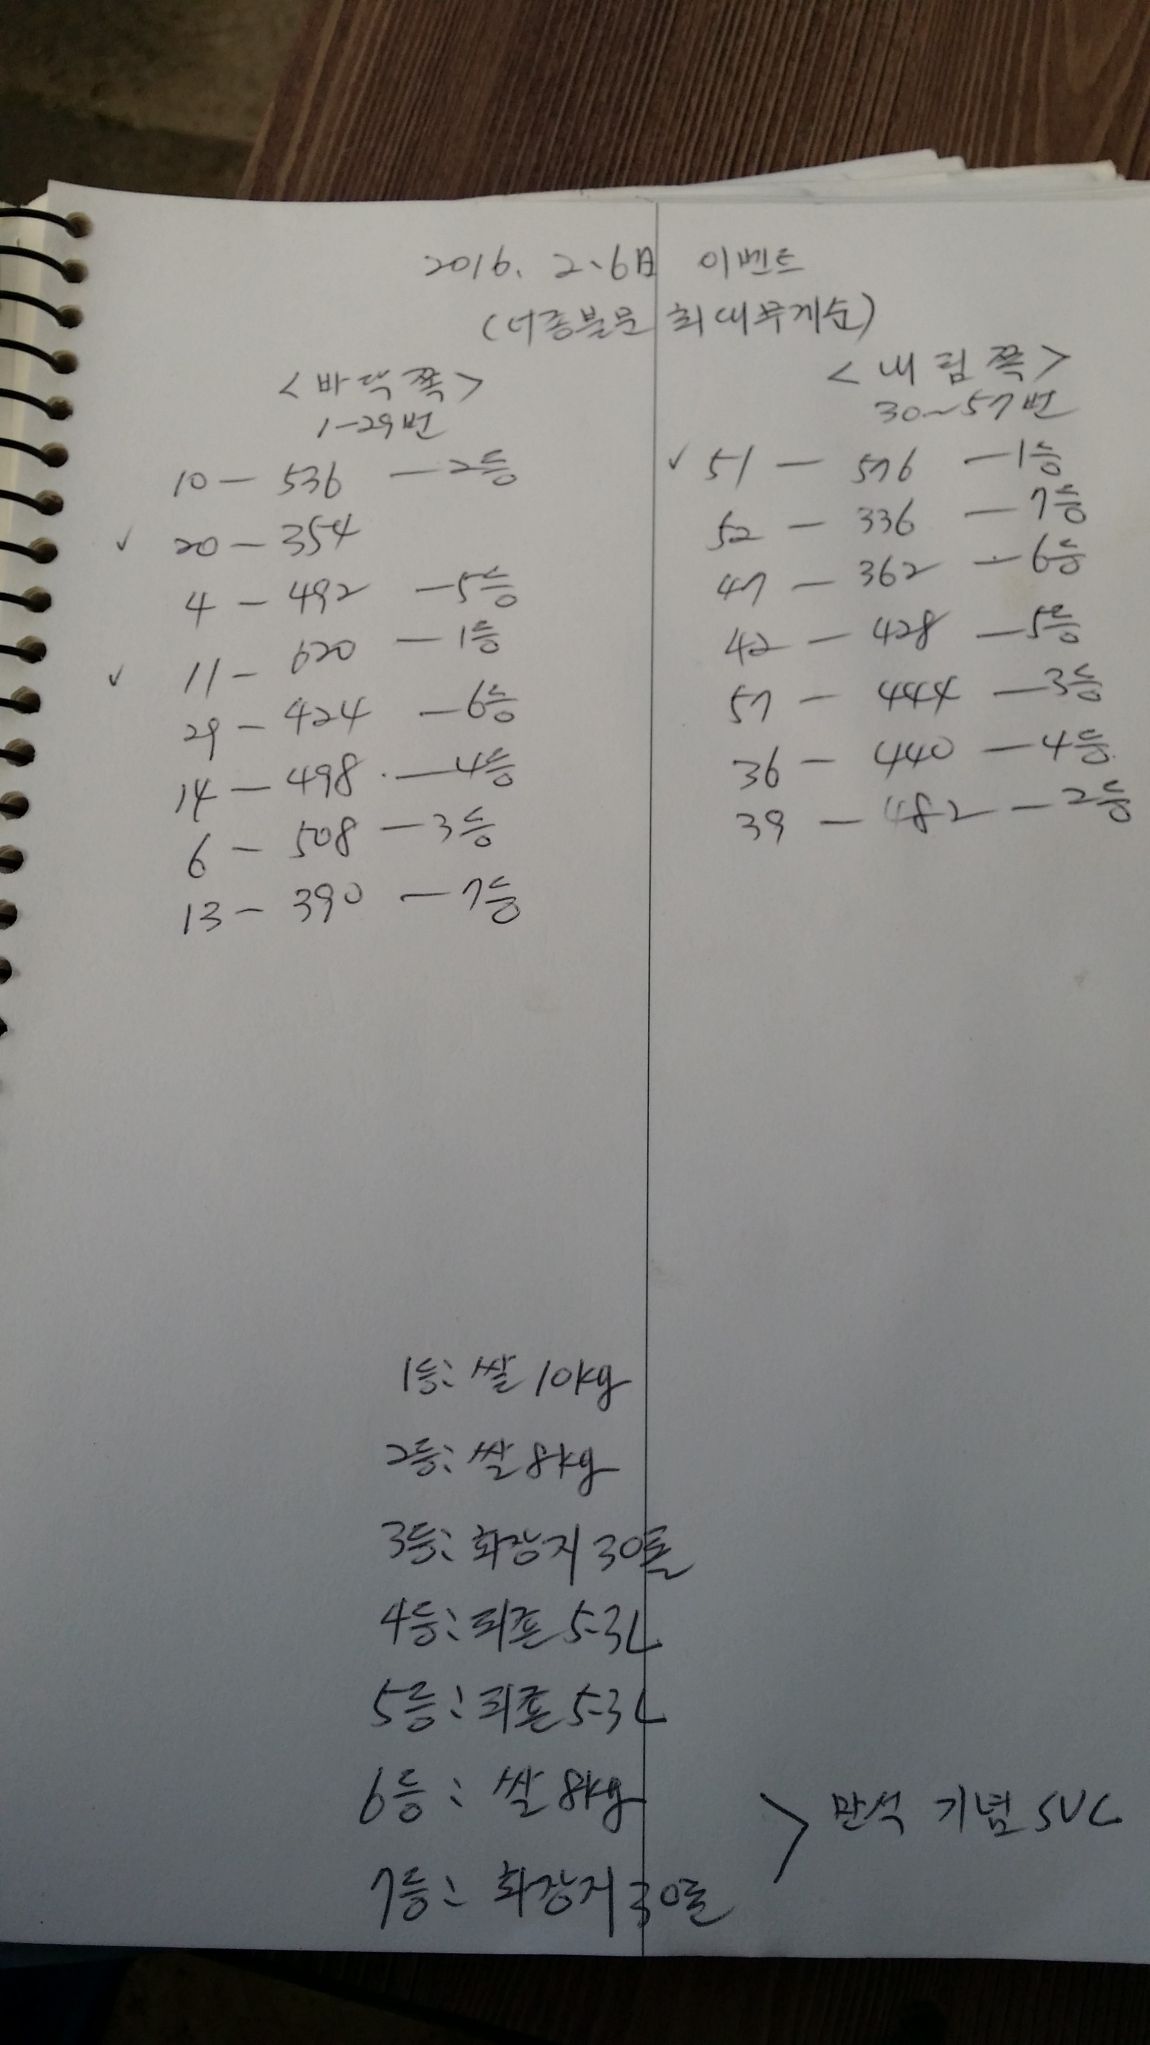 2016. 2.6日 이벤트
(어종불문 최대무게순)
<바닥쪽>
1-29번
10 - 536 - 2등
✓ 20 - 354
4 - 492 - 5등
✓ 11 - 620 - 1등
29 - 424 - 6등
14 - 498 - 4등
6 - 508 - 3등
13 - 390 - 7등
<내림쪽>
30~57번
✓ 51 - 576 - 1등
52 - 336 - 7등
47 - 362 - 6등
42 - 428 - 5등
57 - 444 - 3등
36 - 440 - 4등
39 - 482 - 2등
1등: 쌀 10kg
2등: 쌀 8kg
3등: 화장지 30롤
4등: 퍼퓸 5.3L
5등: 퍼퓸 5.3L
6등: 쌀 8kg
7등: 화장지 30롤
> 만석 기념 SVC